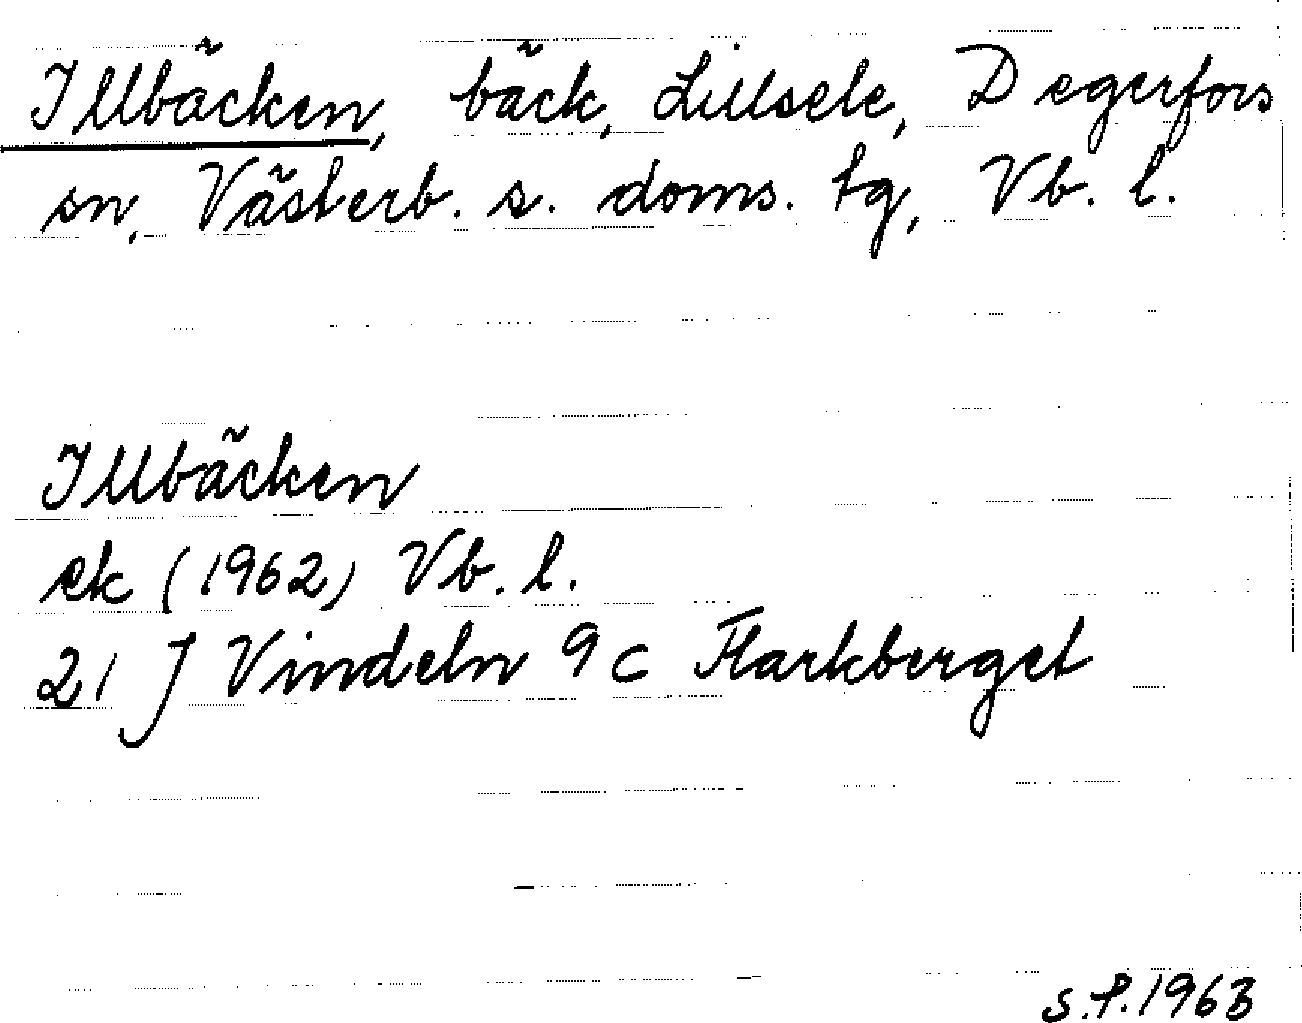 Illbäcken, bäck, Lillsele, Degerfors
sn, Västerb. s. doms. tg, Vb. l.
Illbäcken
ek (1962) Vb. l.
21 J Vindeln 9 c Flarkberget
S.P. 1963